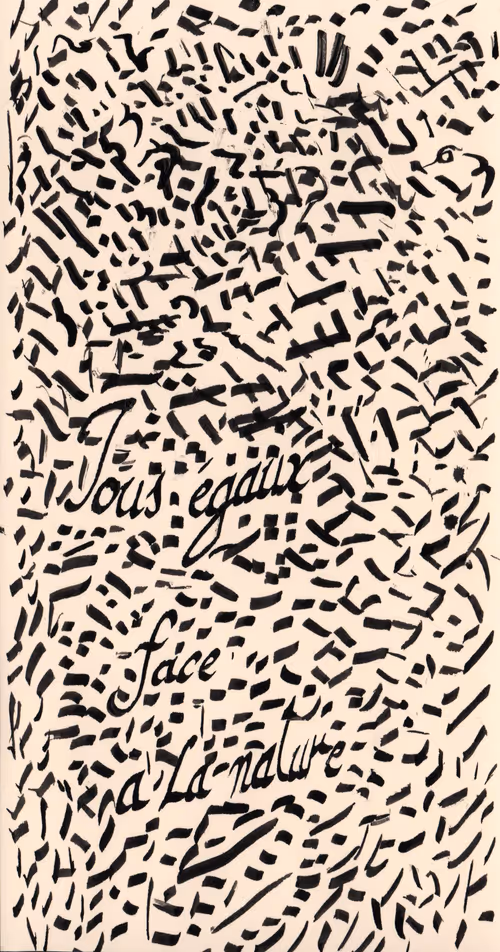 Tous égaux
face
a La nature